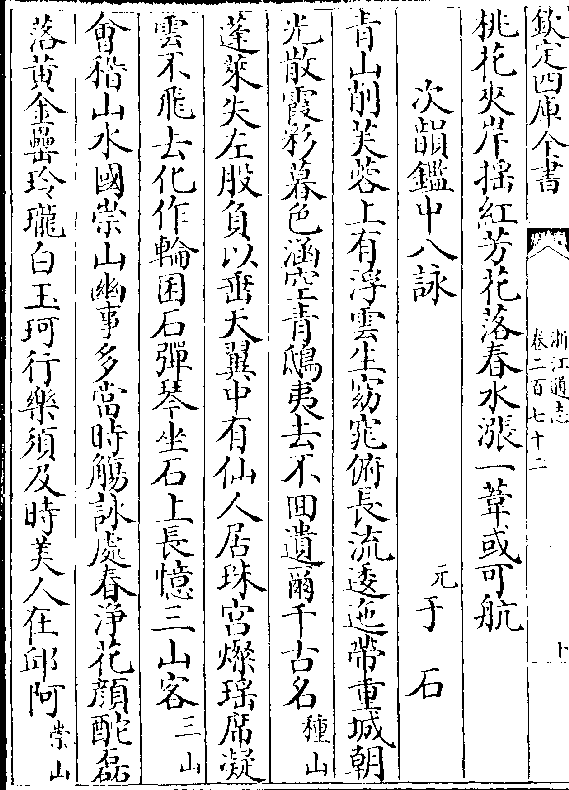 欽定四庫全書
浙江通志
卷二百七十二
桃花夾岸搖紅芳花落春水漲一葦或可航
次韻鑑中八詠
元于石
青山削芙蓉上有浮雲生窈窕俯長流逶迤帶重城朝
光散霞彩暮色涵空青鴟夷去不回遺爾千古名種山
蓬萊失左股負以垂天翼中有仙人居珠宮燦瑶席凝
雲不飛去化作輪囷石彈琴坐石上長憶三山客三山
會稽山水國崇山幽事多當時觴詠處春淨花顔酡磊
落黄金罍玲瓏白玉珂行樂須及時美人在邱阿崇山